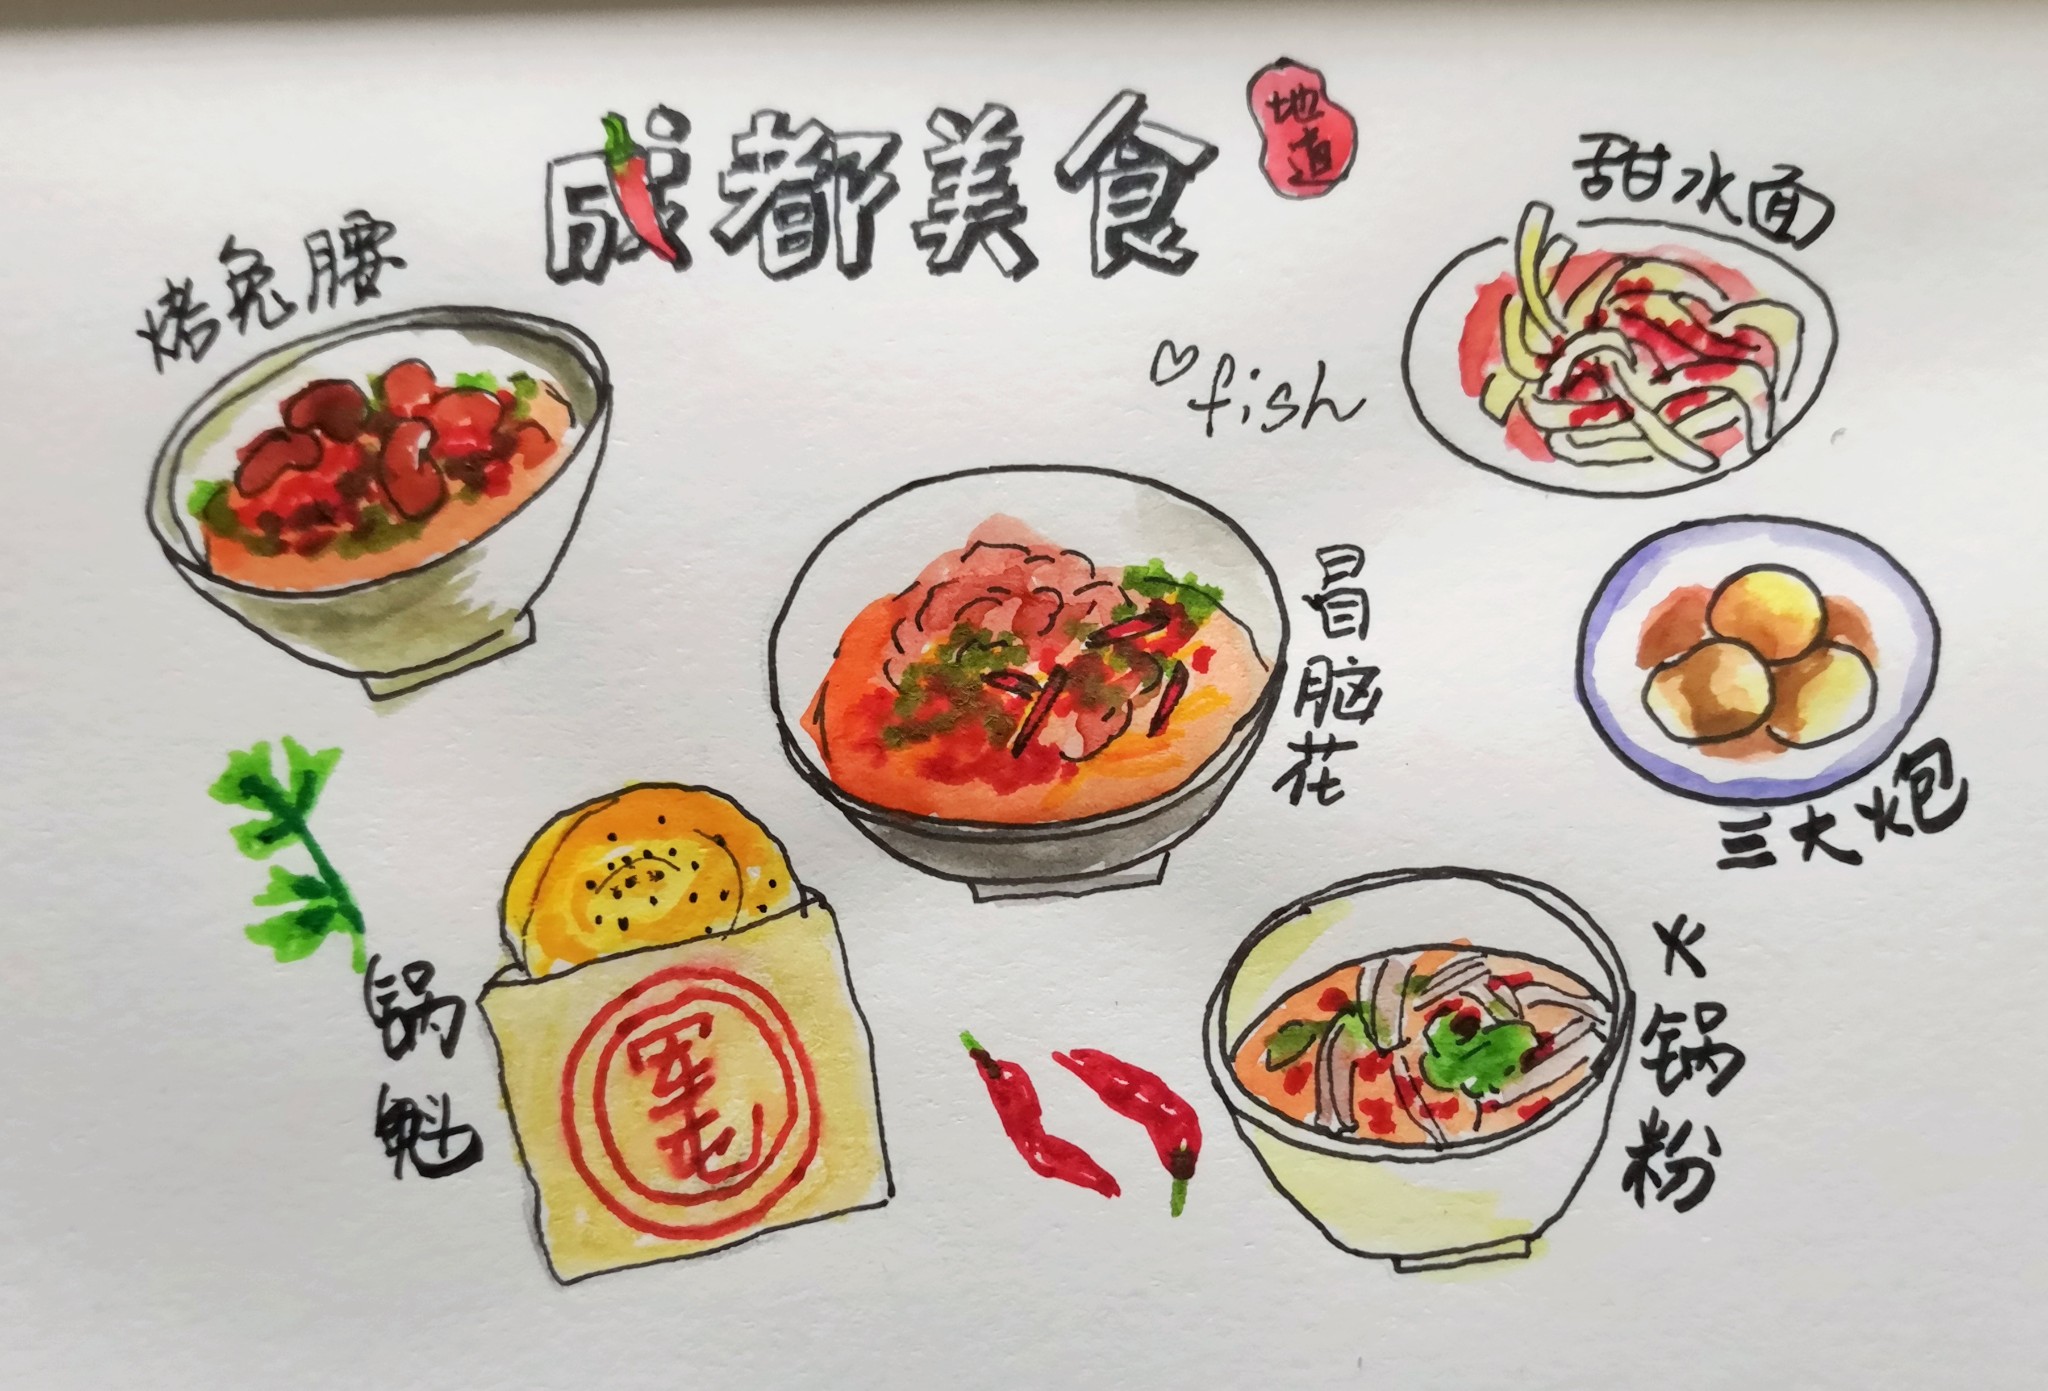 成都美食
地道
甜水面
烤兔腰
fish
冒脑花
三大炮
锅魁
军屯
火锅粉